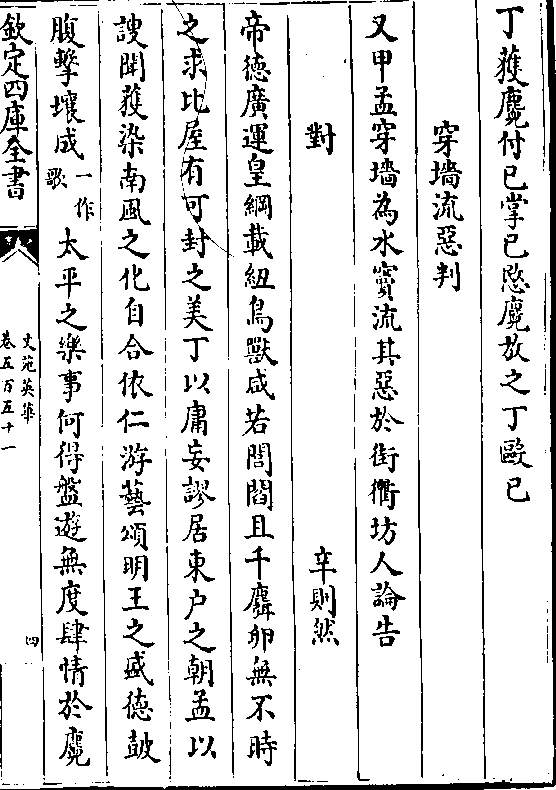 丁獲麑付已掌已愍麑放之丁毆已
穿墻流惡判
又甲孟穿墻為水竇流其惡於街衢坊人論告
對 辛則然
帝德廣運皇綱載紐鳥獸咸若閭閻且千麛卵無不時
之求比屋有可封之美丁以庸妄謬居東户之朝孟以
謏聞獲染南風之化自合依仁游藝頌明王之盛德鼓
腹擊壤成一作歌太平之樂事何得盤遊無度肆情於麑
欽定四庫全書
文苑英華
卷五百五十一
四